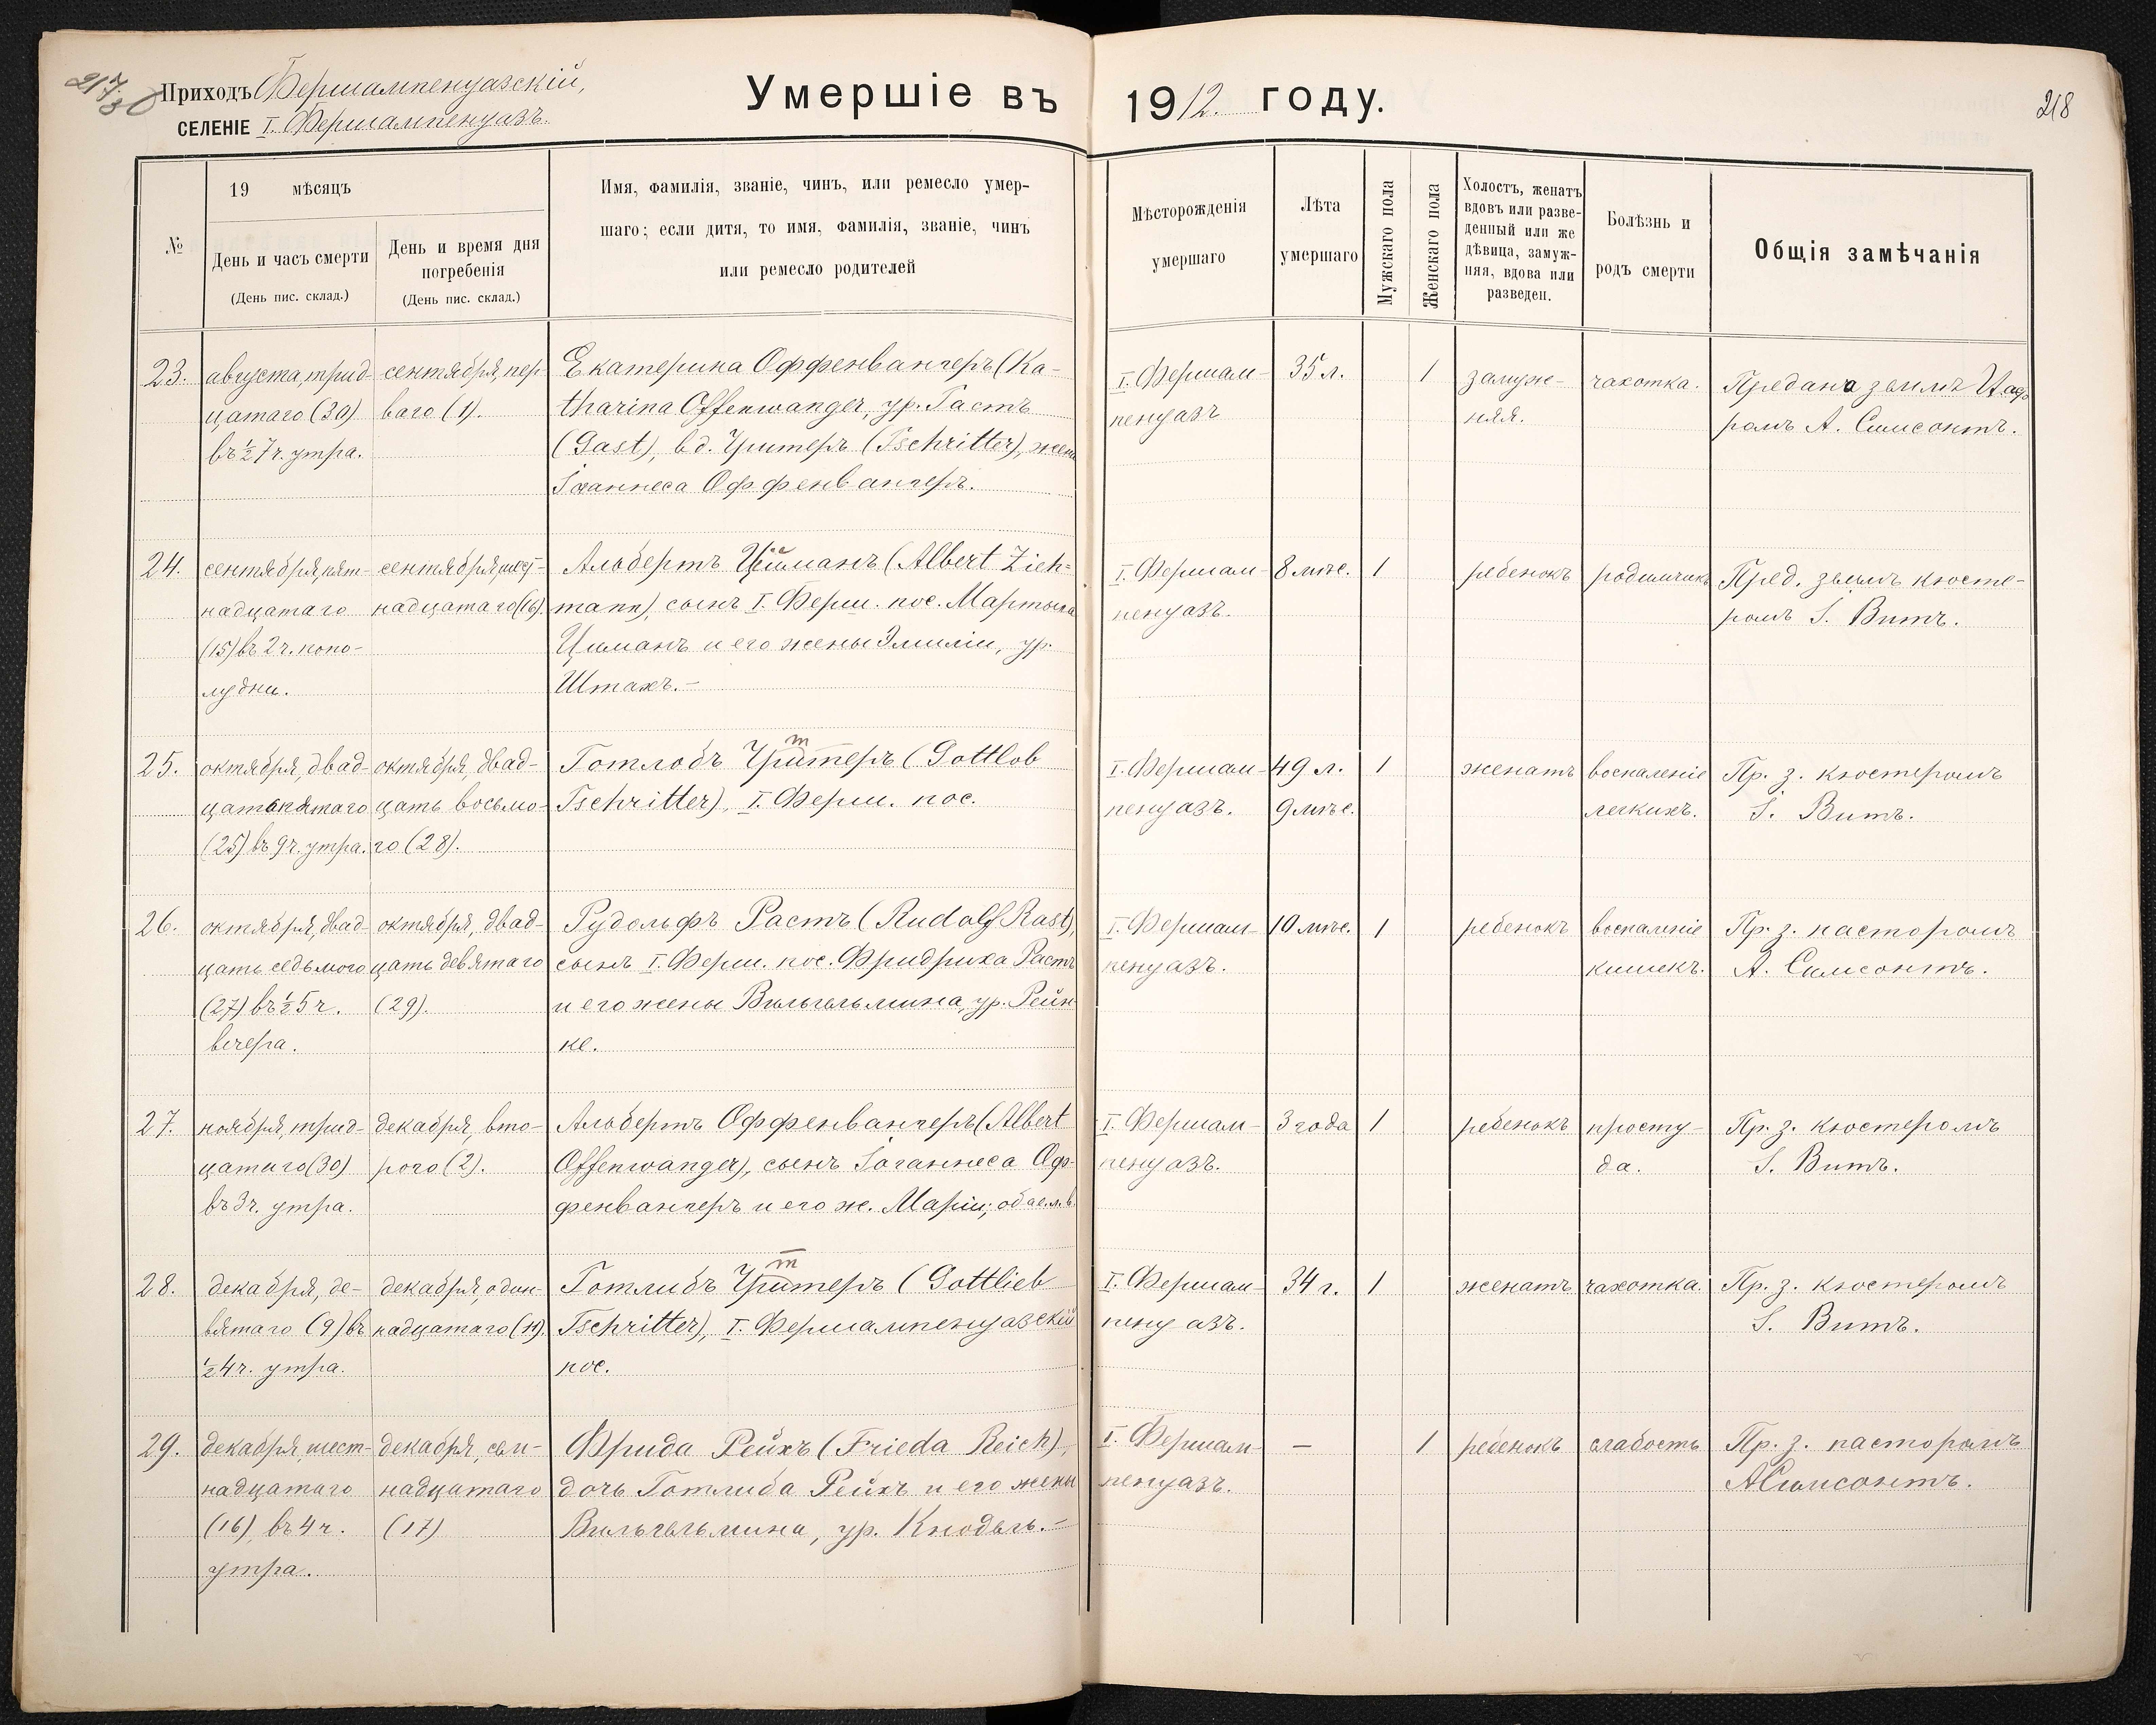 217.
80
Приходъ Фершампенуазскій,
СЕЛЕНІЕ I. Фершампенуазъ.
Умершіе въ 1912. году.
218
№
19 мѣсяцъ
День и часъ смерти
(День пис. склад.)
День и время дня
погребенія
(День пис. склад.)
Имя, фамилія, званіе, чинъ, или ремесло умер-
шаго; если дитя, то имя, фамилія, званіе, чинъ
или ремесло родителей
Мѣсторожденія
умершаго
Лѣта
умершаго
Мужскаго пола
Женскаго пола
Холостъ, женатъ
вдовъ или разве-
денный или же
дѣвица, замуж-
няя, вдова или
разведен.
Болѣзнь и
родъ смерти
Общія замѣчанія
23.
августа, трид-
цатаго (30)
въ ½ 7 ч. утра.
сентября, пер-
ваго (1).
Екатерина Оффенвангеръ (Ka-
tharina Offenwanger, ур. Гастъ
(Gast), вд. Чритеръ (Tschritter), жена
Іоаннеса Оффенвангеръ.
I. Фершам-
пенуазъ
35 л.
1
замуж-
няя.
чахотка.
Предана землѣ Пасто
ромъ А. Симсонъ.
24.
сентября, пят-
надцатаго
(15) въ 2 ч. попо-
лудни.
сентября, шест-
надцатаго (16).
Альбертъ Циманъ (Albert Zieh=
mann), сынъ I. Ферш. пос. Мартына
Циманъ и его жены Эмиліи, ур.
Штахъ.-
I. Фершам-
пенуазъ.
8 мѣс.
1
ребенокъ
родимчикъ
Пред. землѣ кюсте-
ромъ I. Витъ.
25.
октября, двад-
цатьпятаго
(25) въ 9 ч. утра.
октября, двад-
цать восьмо-
го (28).
т
Готлобъ Чритеръ (Gottlob
Tschritter), I. Ферш. пос.
I. Фершам-
пенуазъ.
49 л.
9 мѣс.
1
женатъ
воспаленіе
легкихъ.
Пр. з. кюстеромъ
I. Витъ.
26.
октября, двад-
цать седьмого
(27) въ ½ 5 ч.
вечера.
октября, двад-
цать девятаго
(29).
Рудольфъ Растъ (Rudolf Rast),
сынъ I. Ферш. пос. Фридриха Растъ
и его жены Вильгельмина, ур. Рейн-
ке.
I. Фершам-
пенуазъ.
10 мѣс.
1
ребенокъ
воспаленіе
кишекъ.
Пр. з. пасторомъ
А. Симсонъ.
27.
ноября, трид-
цатаго (30)
въ 3 ч. утра.
декабря, вто-
рого (2).
Альбертъ Оффенвангеръ (Albert
Offenwanger), сынъ Іоганнеса Оф-
фенвангеръ и его ж. Маріи;
I. Фершам-
пенуазъ.
3 года
1
ребенокъ
просту-
да.
Пр. з. кюстеромъ
I. Витъ.
28.
декабря, де-
вятаго (9) въ
½ 4 ч. утра.
декабря, один-
надцатаго (11).
т
Готлибъ Чритеръ (Gottlieb
Tschritter), I. Фершампенуазскій
пос.
I. Фершам-
пенуазъ.
34 г.
1
женатъ
чахотка.
Пр. з. кюстеромъ
I. Витъ.
29.
декабря, шест-
надцатаго
(16) въ 4 ч.
утра.
декабря, сем-
надцатаго
(17)
Фрида Рейхъ (Frieda Reich),
дочь Готлиба Рейхъ и его жены
Вильгельмина, ур. Кнодель.-
I. Фершам-
пенуазъ.
—
1
ребенокъ
слабость
Пр. з. пасторомъ
А Симсонъ.